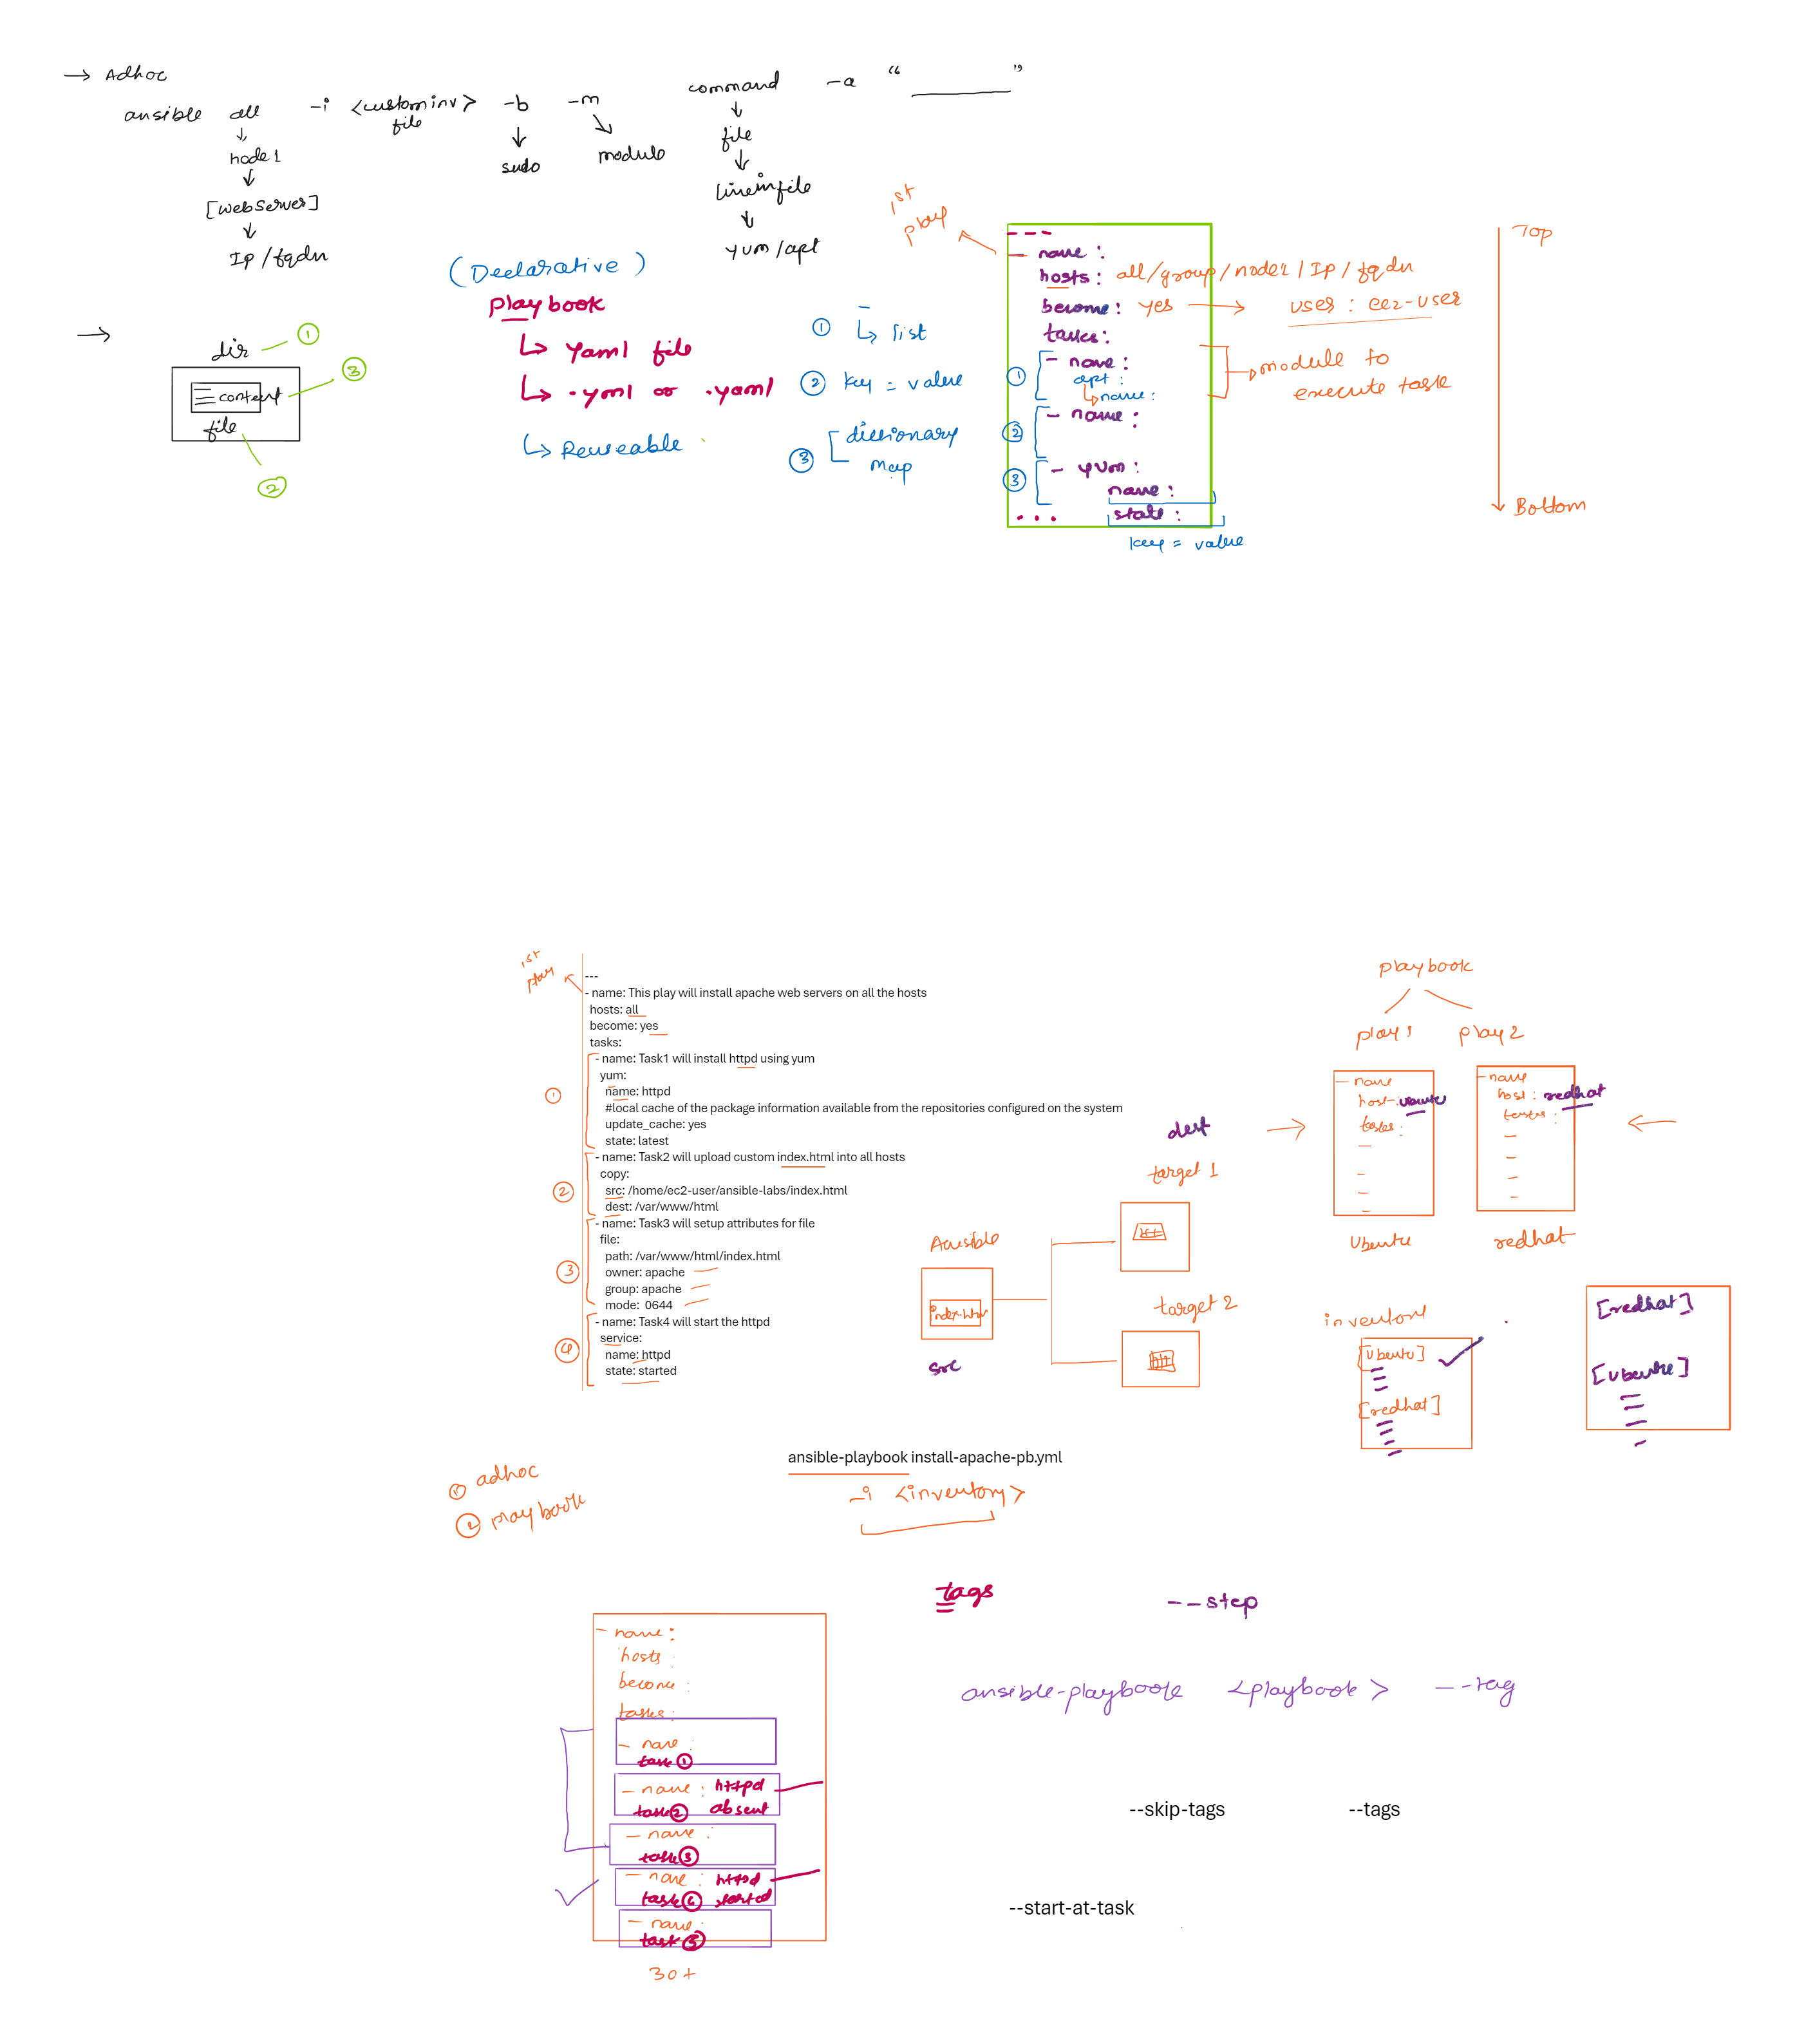 → Adhoc
ansible all -i <custom inv> file -b -m command -a " ______ "
↓
node1
↓
[webserver]
↓
Ip / fqdn
↓
sudo
module
↓
file
↓
lineinfile
↓
yum/apt
→
dir ①
content ③
file ②
(Declarative)
playbook
↳ yaml file
↳ .yml or .yaml
↳ Reuseable
① -
↳ list
② key = value
③ dictionary
map
1st
play
---
- name :
hosts : all/group/node1/Ip/fqdn
become : yes → user : ec2-user
tasks :
① - name :
apt :
↳ name :
module to
execute task
② - name :
③ - yum :
name :
state :
...
key = value
Top
Bottom
1st
play
---
- name: This play will install apache web servers on all the hosts
hosts: all
become: yes
tasks:
① - name: Task1 will install httpd using yum
yum:
name: httpd
#local cache of the package information available from the repositories configured on the system
update_cache: yes
state: latest
② - name: Task2 will upload custom index.html into all hosts
copy:
src: /home/ec2-user/ansible-labs/index.html
dest: /var/www/html
③ - name: Task3 will setup attributes for file
file:
path: /var/www/html/index.html
owner: apache
group: apache
mode: 0644
④ - name: Task4 will start the httpd
service:
name: httpd
state: started
dest
target 1
Ansible
index.html
src
target 2
playbook
play 1
play 2
- name
host : ubuntu
tasks :
Ubuntu
- name
host : redhat
tasks :
redhat
inventory
[Ubuntu]
[redhat]
[redhat]
[Ubuntu]
ansible-playbook install-apache-pb.yml
-i <inventory>
① adhoc
② playbook
tags
--step
ansible-playbook <playbook> --tag
--skip-tags --tags
--start-at-task
- name :
hosts
become :
tasks :
- name :
task ①
- name : httpd
task ② absent
- name :
task ③
- name : httpd
task ④ started
- name :
task ⑤
30+